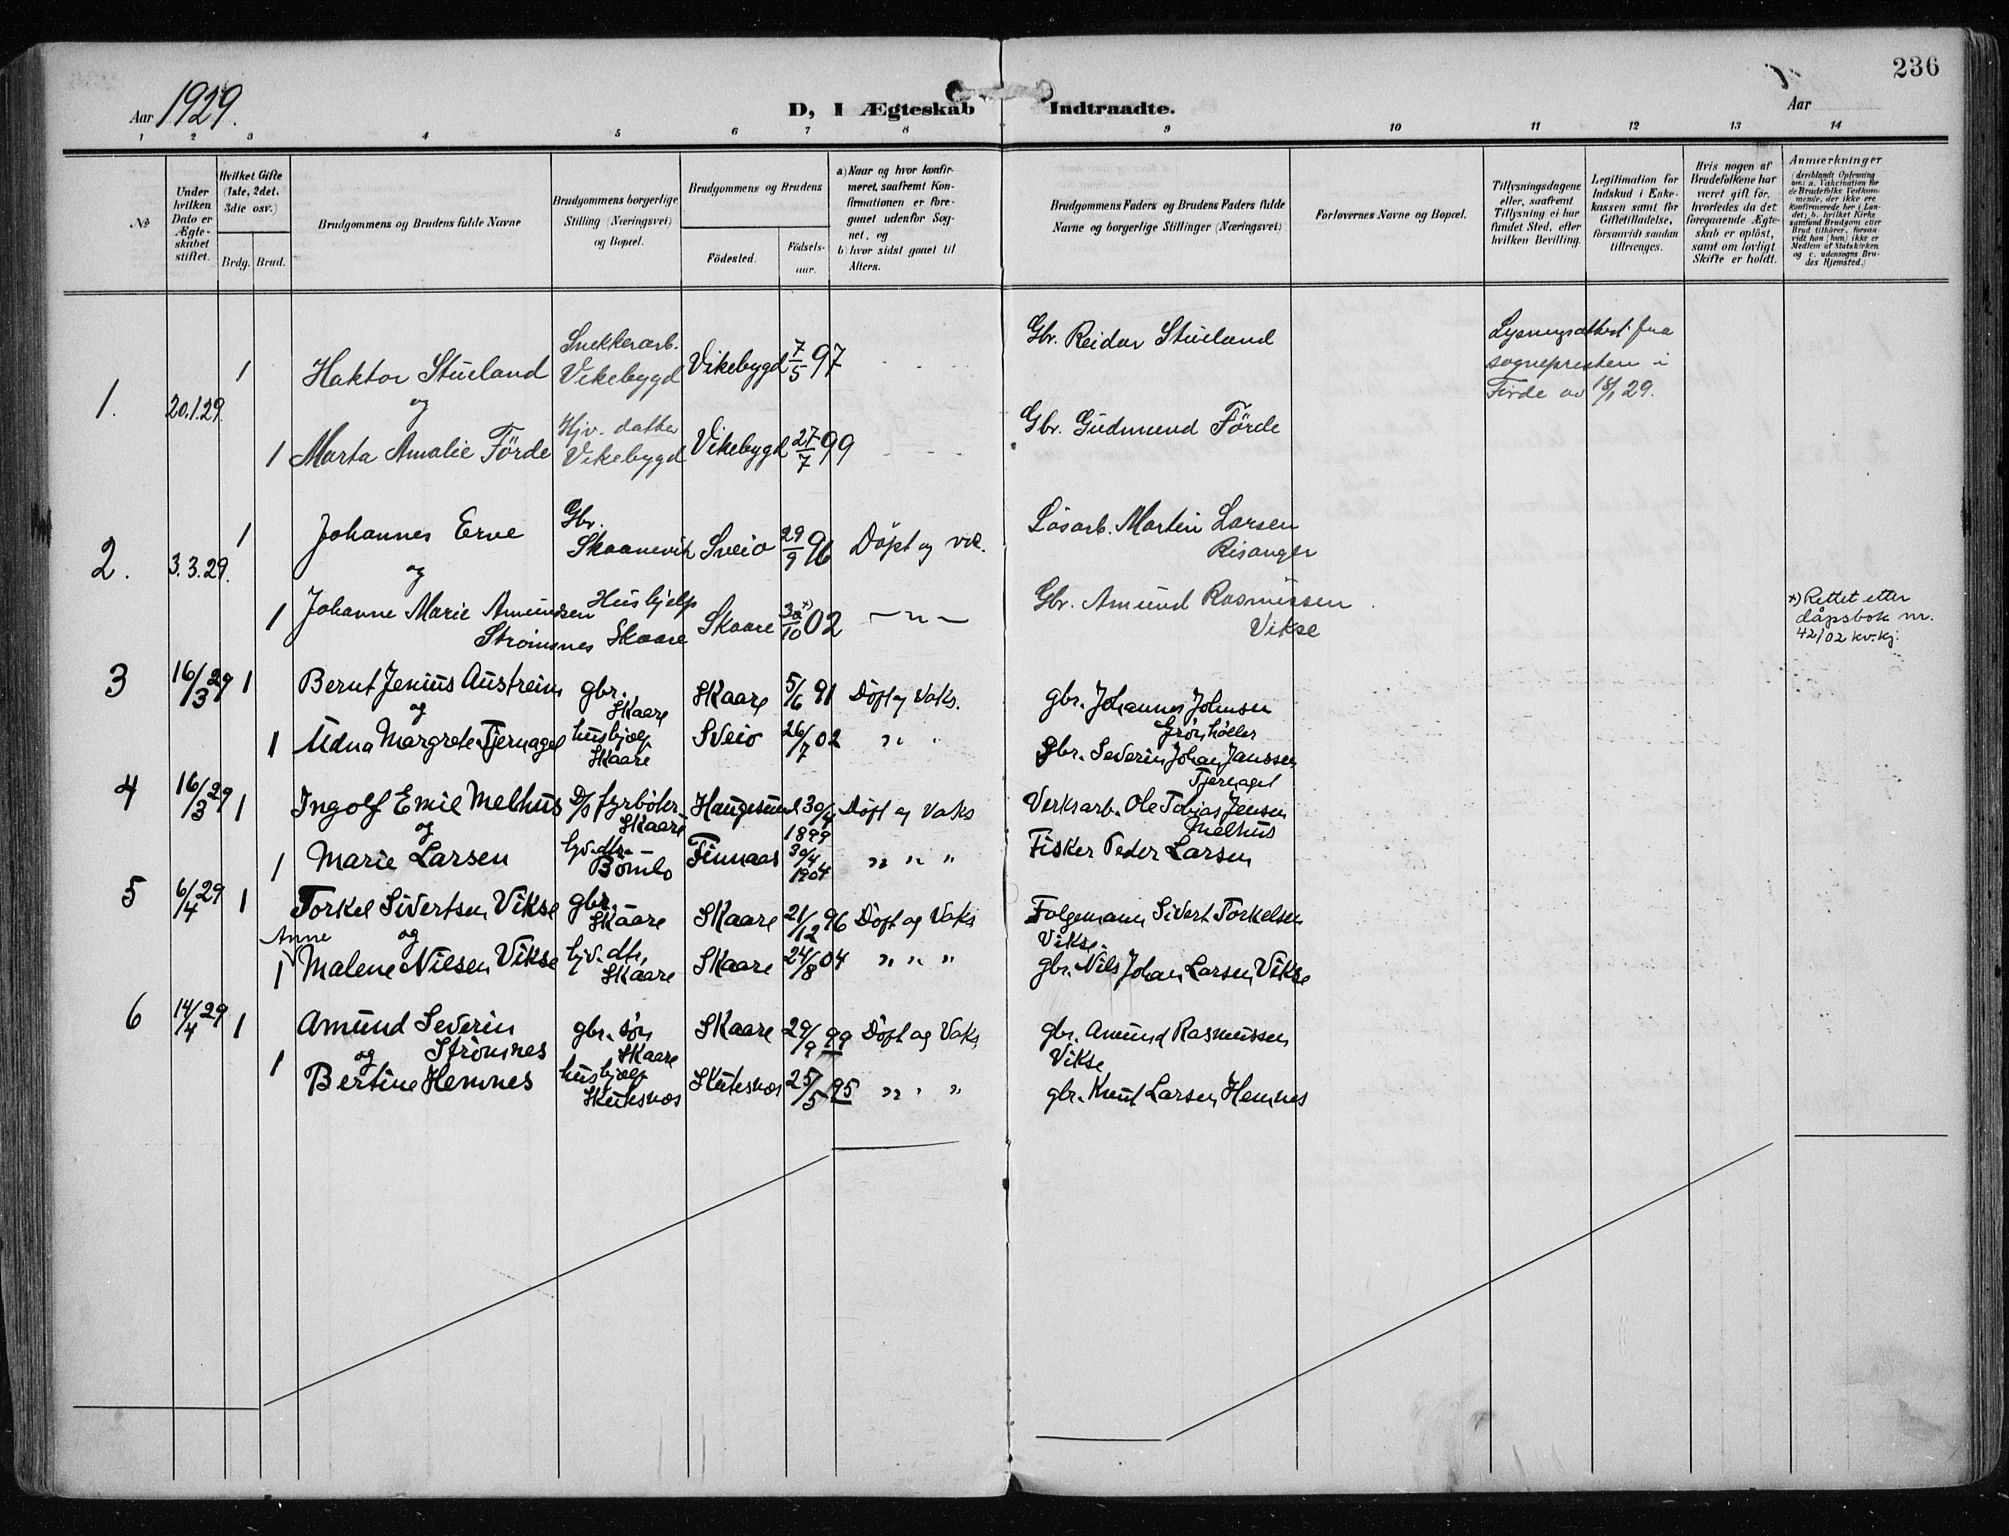 236
Aar 1929.
D, I Ægteskab Indtraadte.
Aar
1 2 3 4 5 6 7 8 9 10 11 12 13 14
№
Under hvilken Dato er Ægteskabet stiftet.
Hvilket Gifte (1ste, 2det, 3die osv.)
Brdg. Brud.
Brudgommens og Brudens fulde Navne
Brudgommens borgerlige Stilling (Næringsvei) og Bopæl.
Brudgommens og Brudens
Fødested. Fødselsaar.
a) Naar og hvor konfirmeret, saafremt Konfirmationen er foregaaet udenfor Sognet, og
b) hvor sidst gaaet til Alters.
Brudgommens Faders og Brudens Faders fulde Navne og borgerlige Stillinger (Næringsvei)
Forlovernes Navne og Bopæl.
Tillysningsdagene eller, saafremt Tillysning ei har fundet Sted, efter hvilken Bevilling.
Legitimation for Indskud i Enkekassen samt for Giftetilladelse, forsaavidt saadan tiltrænges.
Hvis nogen af Brudefolkene har været gift før, hvorledes da det foregaaende Ægteskab er opløst, samt om lovligt Skifte er holdt.
Anmerkninger
1. 20.1.29. 1 Haktor Stueland Snekkerarb. Vikebygd Vikebygd 7/5 97 Gbr. Reidar Stueland Lysningsattest fra
sognepresten i
og
1 Marta Amalie Førde Hjv. datter Vikebygd Vikebygd 27/7 99 Gbr. Gudmund Førde
2. 3.3.29. 1 Johannes Erve Gbr. Skaanevik Sveio 29/9 96 Døpt og vac. Løsarb. Martin Larsen
Risanger
og
1 Johanne Marie Amundsen Strømsnes Hushjelp Skaare Skaare 30/10 x) 02 — " — Gbr. Amund Rasmussen
Vikse
x) Rettet etter
dåpsbok nr.
42/02 kv.kj.
3 16/3 29 1 Bernt Jenius Austreim gbr. Skaare Skaare 5/6 91 Døpt og Vaks. gbr. Johannes Johnsen
og
1 Udna Margrete Tjernagel hushjælp Skaare Sveio 26/7 02 " " gbr. Severin Johan Janssen
Tjernagel
4 16/3 29 1 Ingolf Emil Melhus D/S fyrbøter Skaare Haugesund 30/4 1899 Døpt og Vaks Verksarb. Ole Tobias Jensen
Melhus
og
1 Marie Larsen hjv. dtr. Bømlo Finnaas 30/4 1904 " " " Fisker Peder Larsen
5 6/4 29 1 Torkel Sivertsen Vikse gbr. Skaare Skaare 21/12 96 Døpt og Vaks Folgemann Sivert Torkelsen
Vikse.
og
1 Anne Malene Nilsen Vikse hjv. dtr. Skaare Skaare 24/8 04 " " " gbr. Nils Johan Larsen Vikse
6 14/4 29 1 Amund Severin Strømnes gbr. søn Skaare Skaare 29/9 99 Døpt og Vaks gbr. Amund Rasmussen
Vikse
og
1 Bertine Hemnes hushjælp Skutesnæs Skutesnæs 25/5 95 " " " gbr. Knut Larsen Hemnes